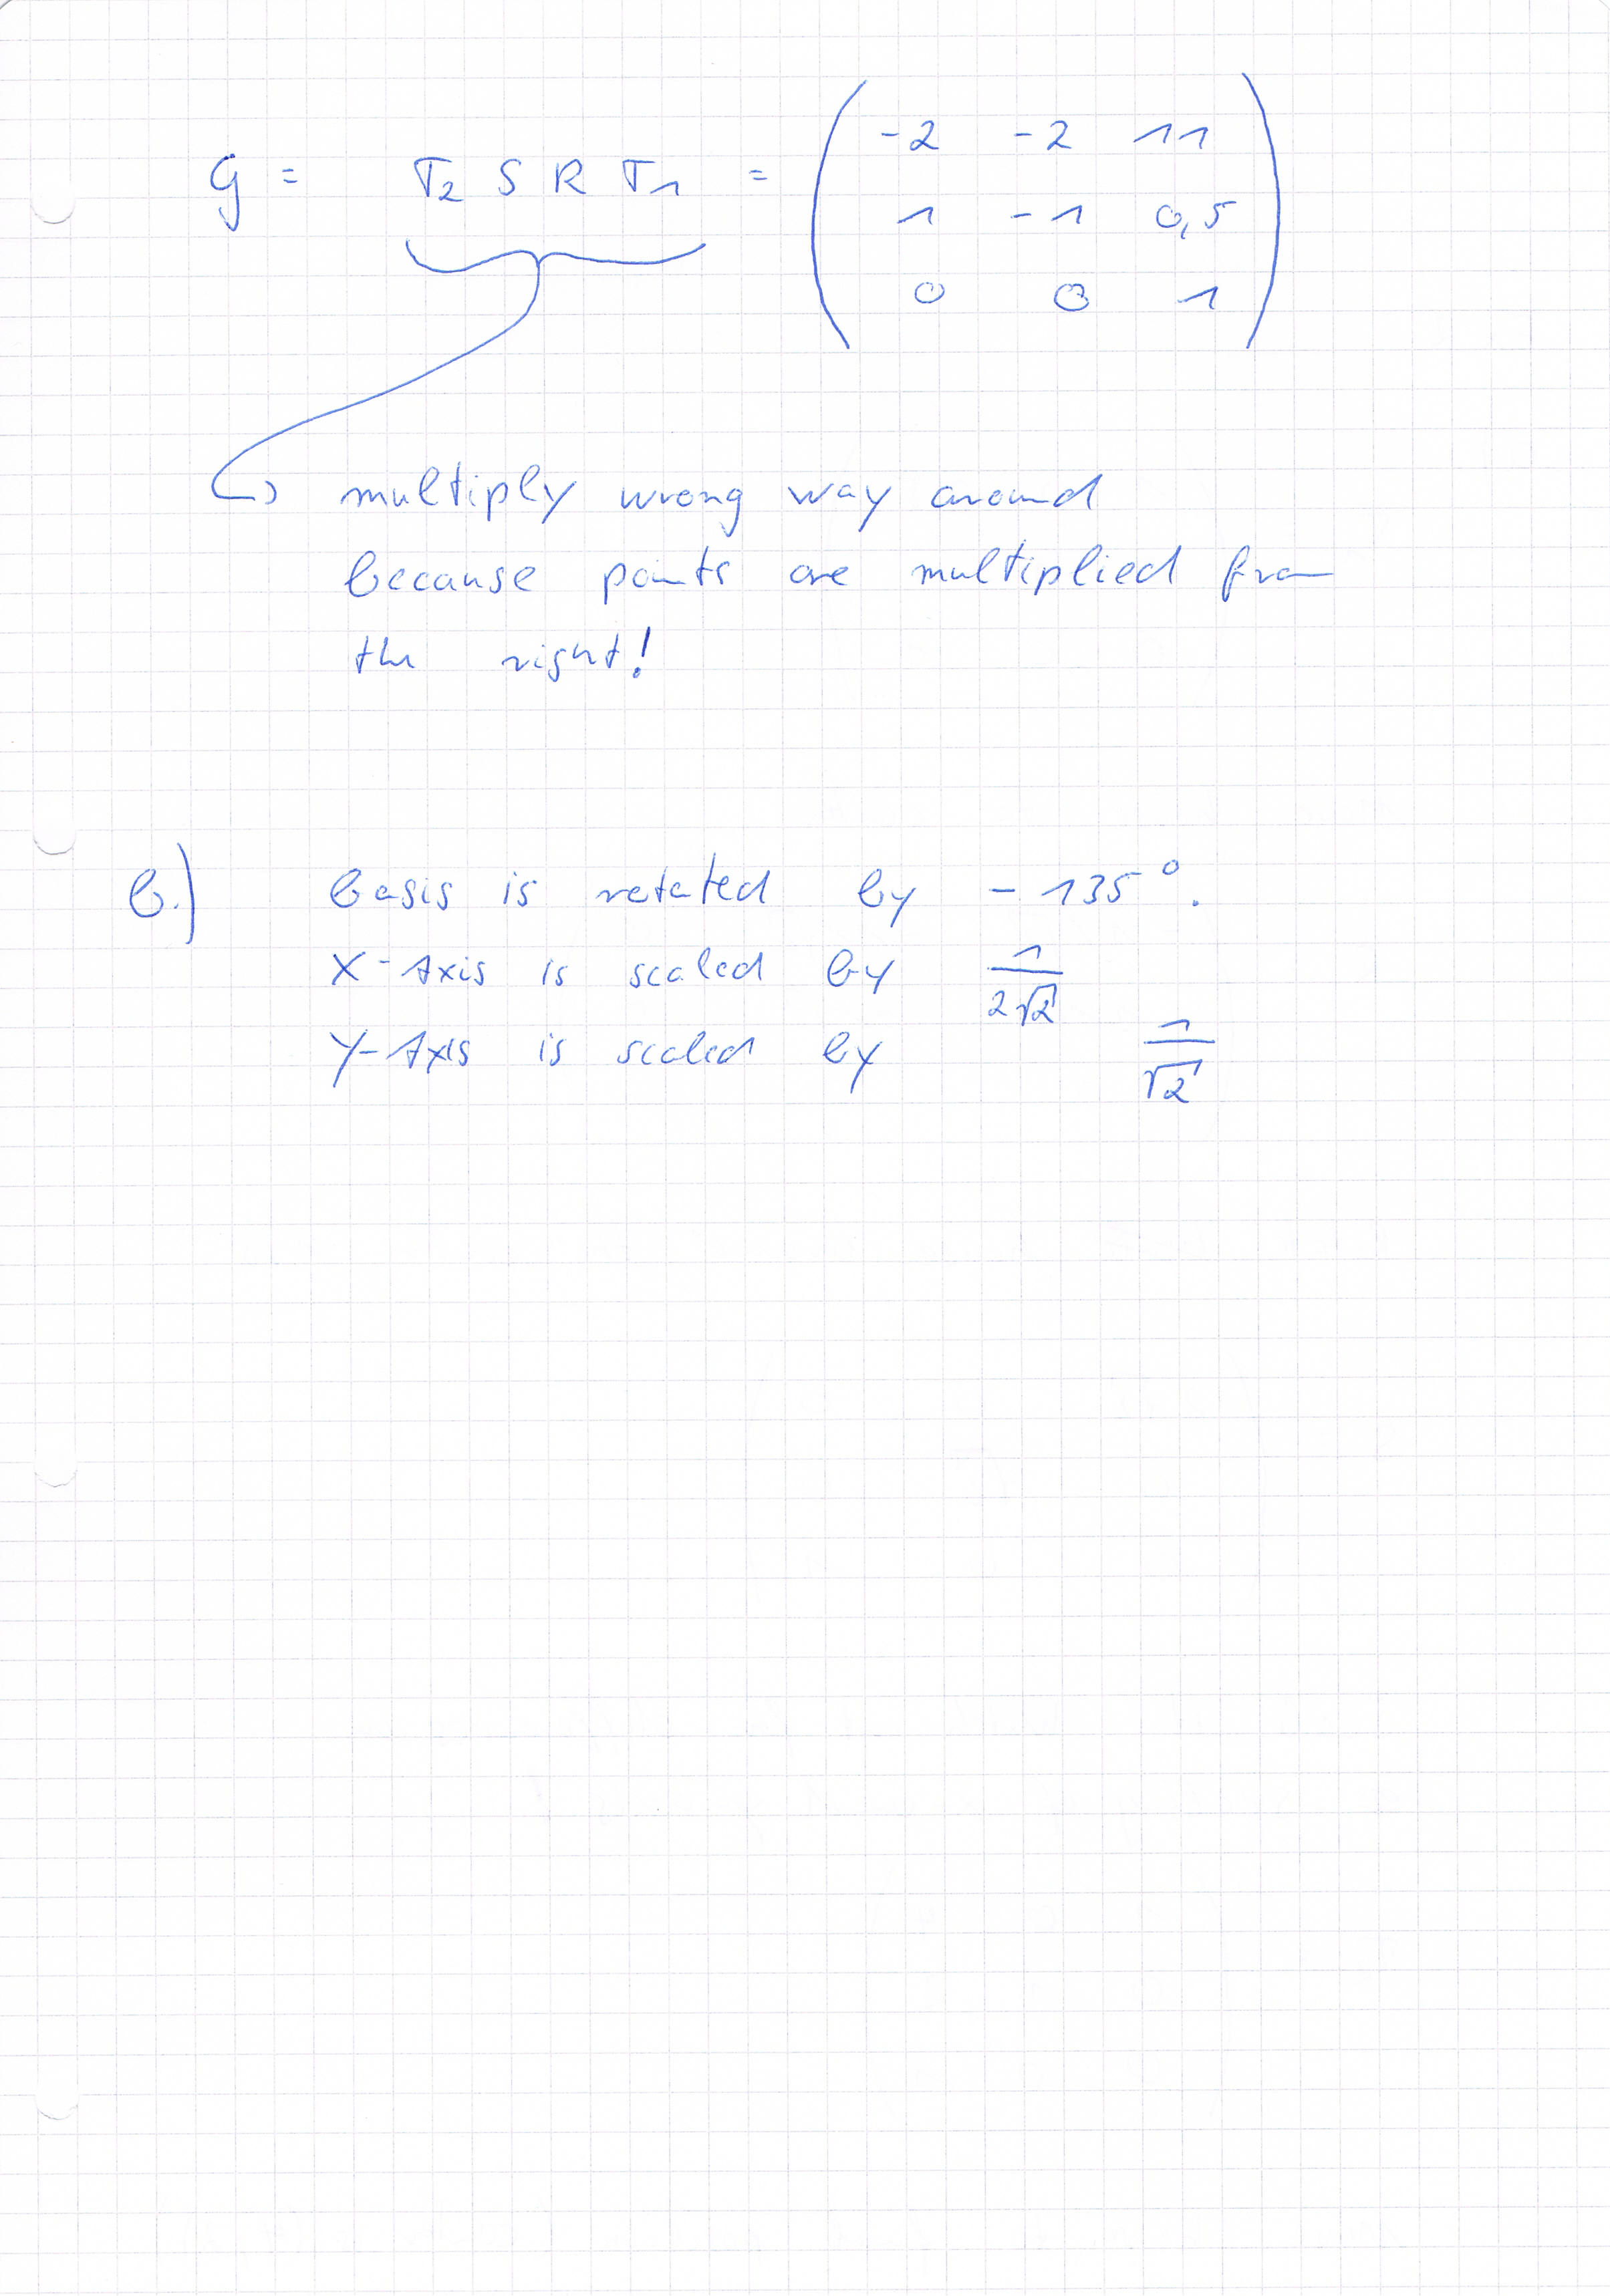 G = T₂ S R T₁ = ( -2 -2 11
1 -1 0,5
0 0 1 )
↳ multiply wrong way around
because points are multiplied from
the right!
b.) Basis is rotated by - 135°.
X-Axis is scaled by 1/(2√2)
Y-Axis is scaled by 1/√2